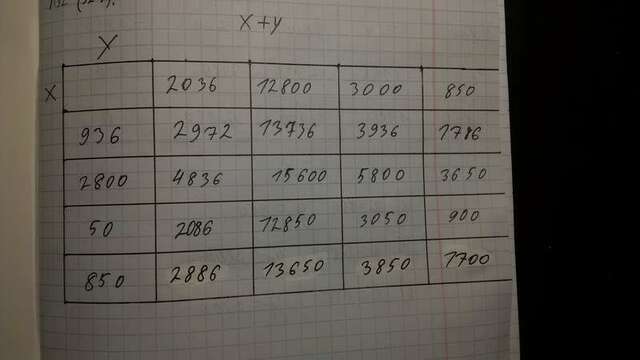 x+y
y
x
2036 12800 3000 850
936 2972 13736 3936 1786
2800 4836 15600 5800 3650
50 2086 12850 3050 900
850 2886 13650 3850 1700